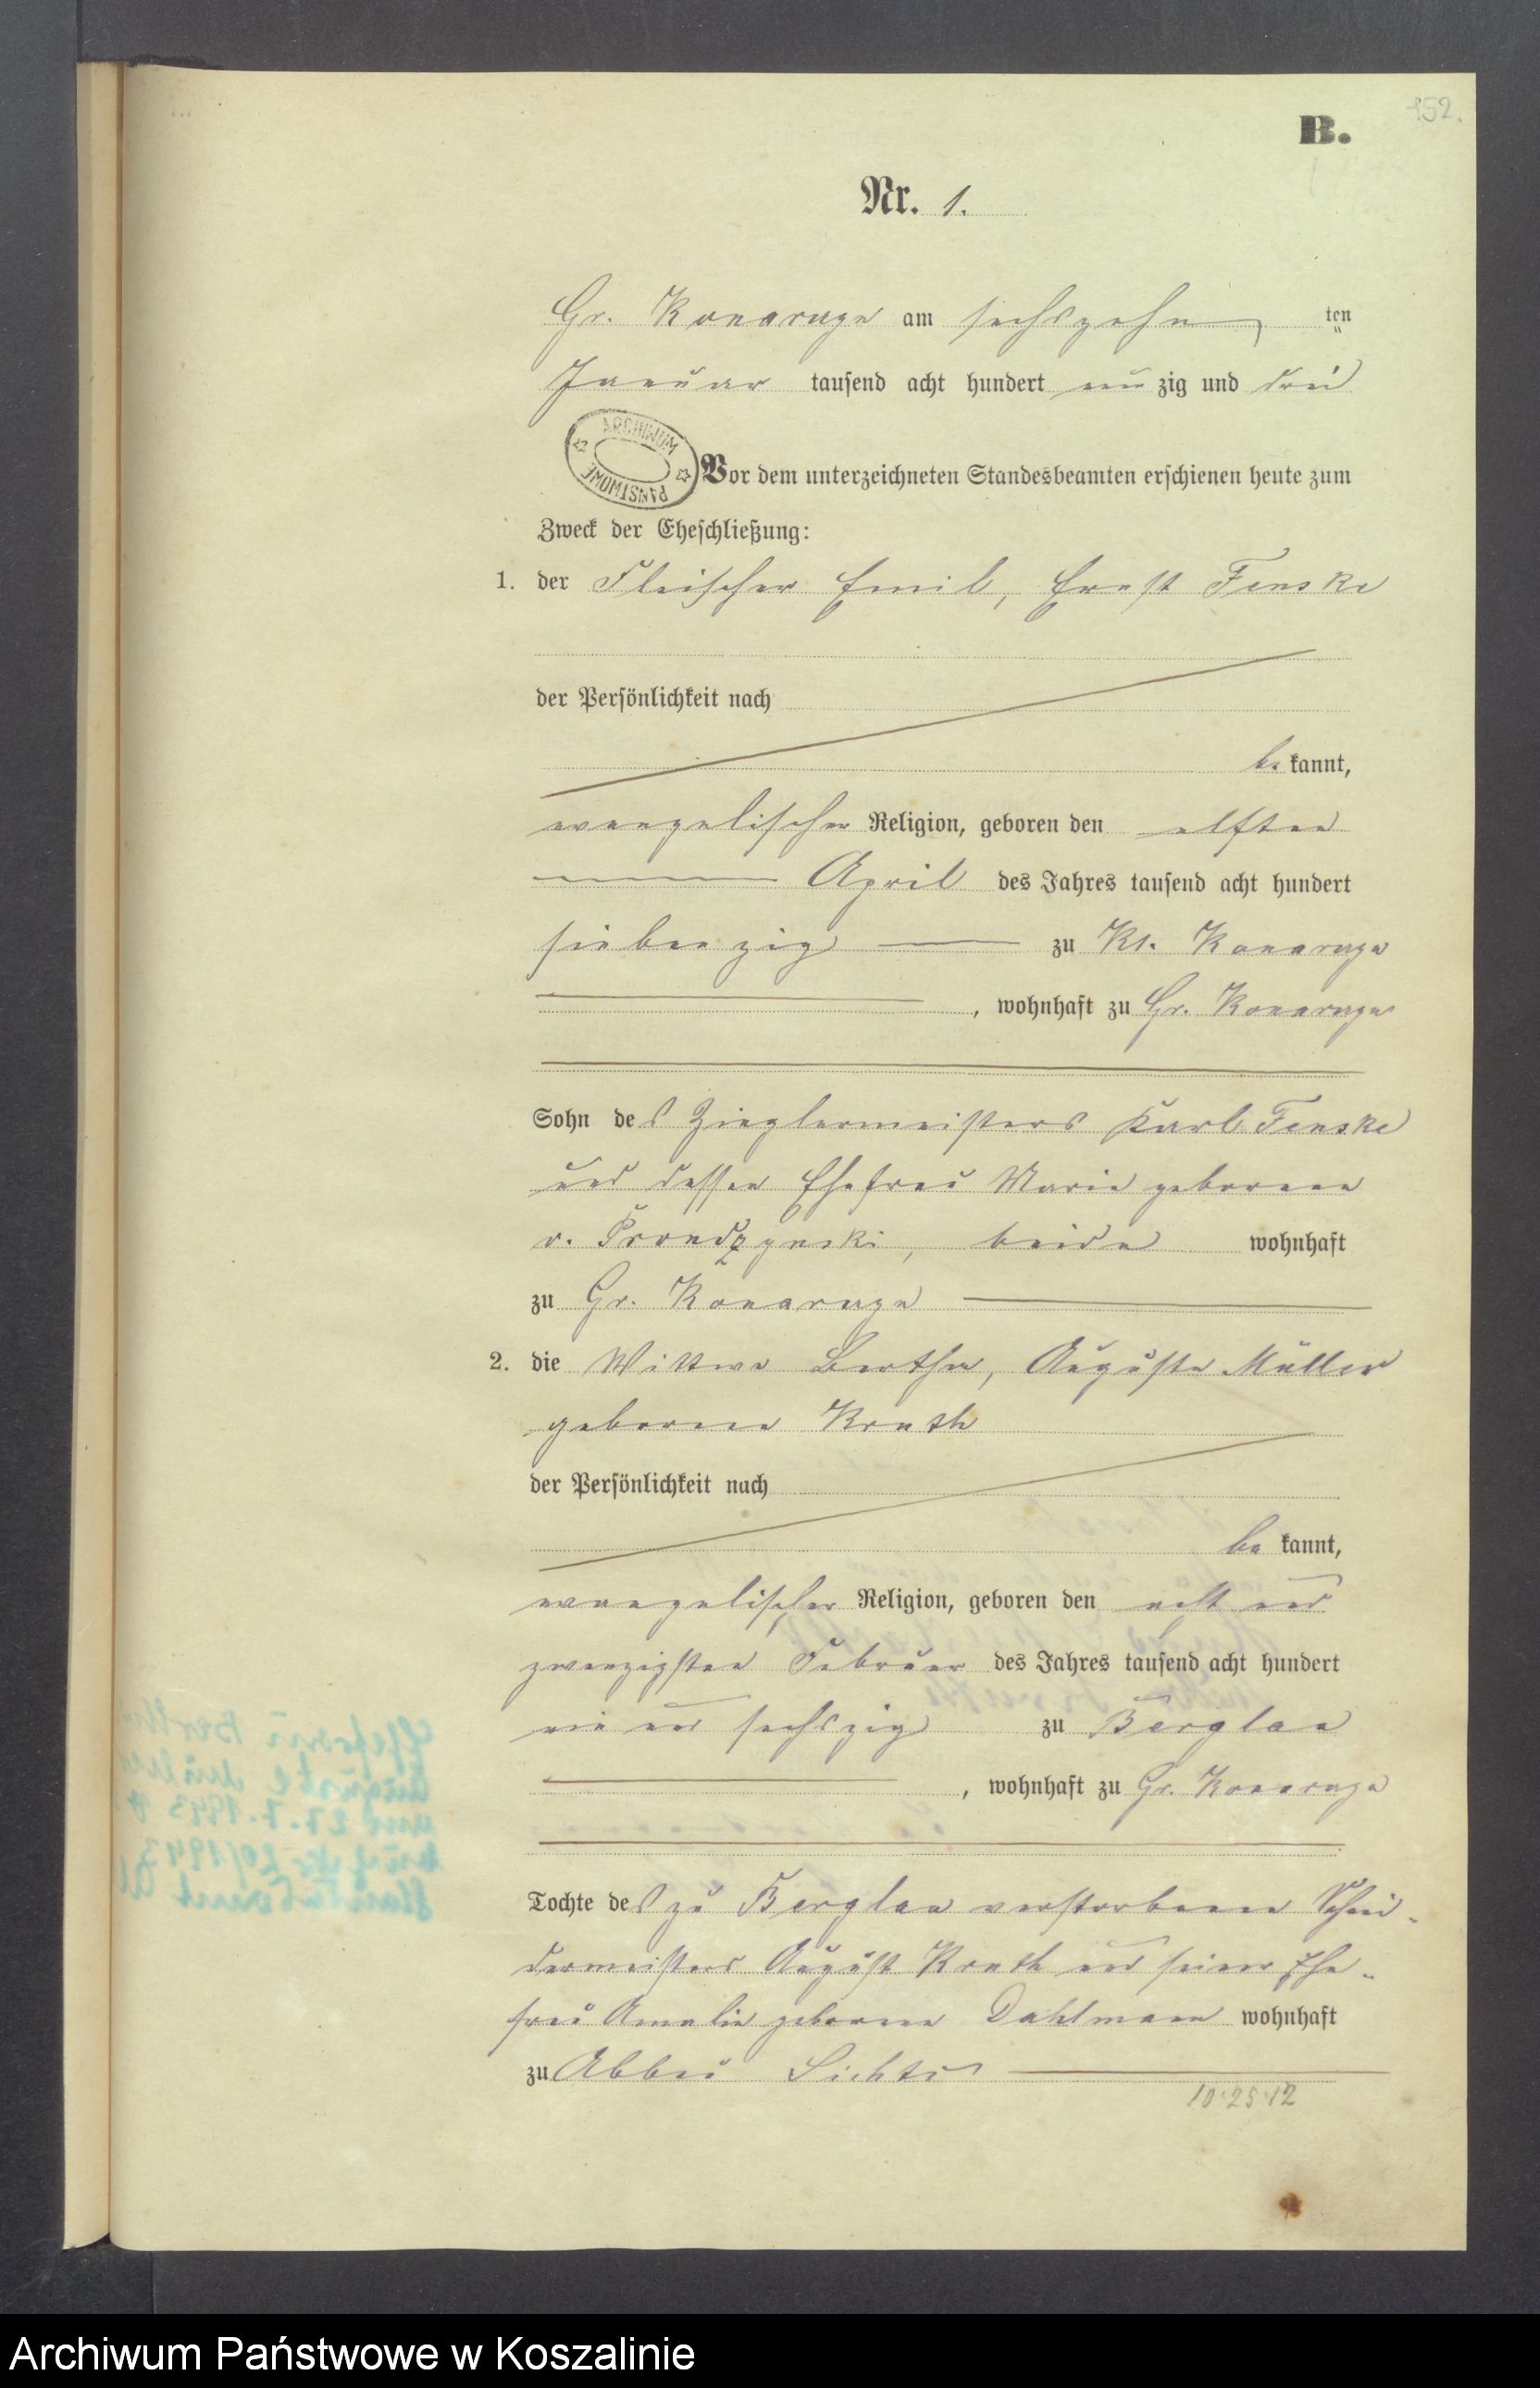 152.
B.
Nr. 1.
Gr. Konarzyn am sechszehn ten
Januar tausend acht hundert neunzig und drei
ARCHIWUM PAŃSTWOWE
Vor dem unterzeichneten Standesbeamten erschienen heute zum
Zweck der Eheschließung:
1. der Fleischer Emil, Ernst Fenske
der Persönlichkeit nach
be kannt,
evangelischer Religion, geboren den elften
April des Jahres tausend acht hundert
siebenzig zu Kl. Konarzyn
, wohnhaft zu Gr. Konarzyn
Sohn des Zieglermeisters Karl Fenske
und dessen Ehefrau Marie geborene
v. Prondzynski, beide wohnhaft
zu Gr. Konarzyn
2. die Wittwe Bertha, Auguste Müller
geborene Knuth
der Persönlichkeit nach
be kannt,
evangelischer Religion, geboren den acht und
zwanzigsten Februar des Jahres tausend acht hundert
ein und sechszig zu Berglau
, wohnhaft zu Gr. Konarzyn
Tochte des zu Berglau verstorbenen Schnei-
dermeisters August Knuth und seiner Ehe-
frau Amalie geborene Dahlmann wohnhaft
zu Abbau Lichts
10·25·12
Archiwum Państwowe w Koszalinie